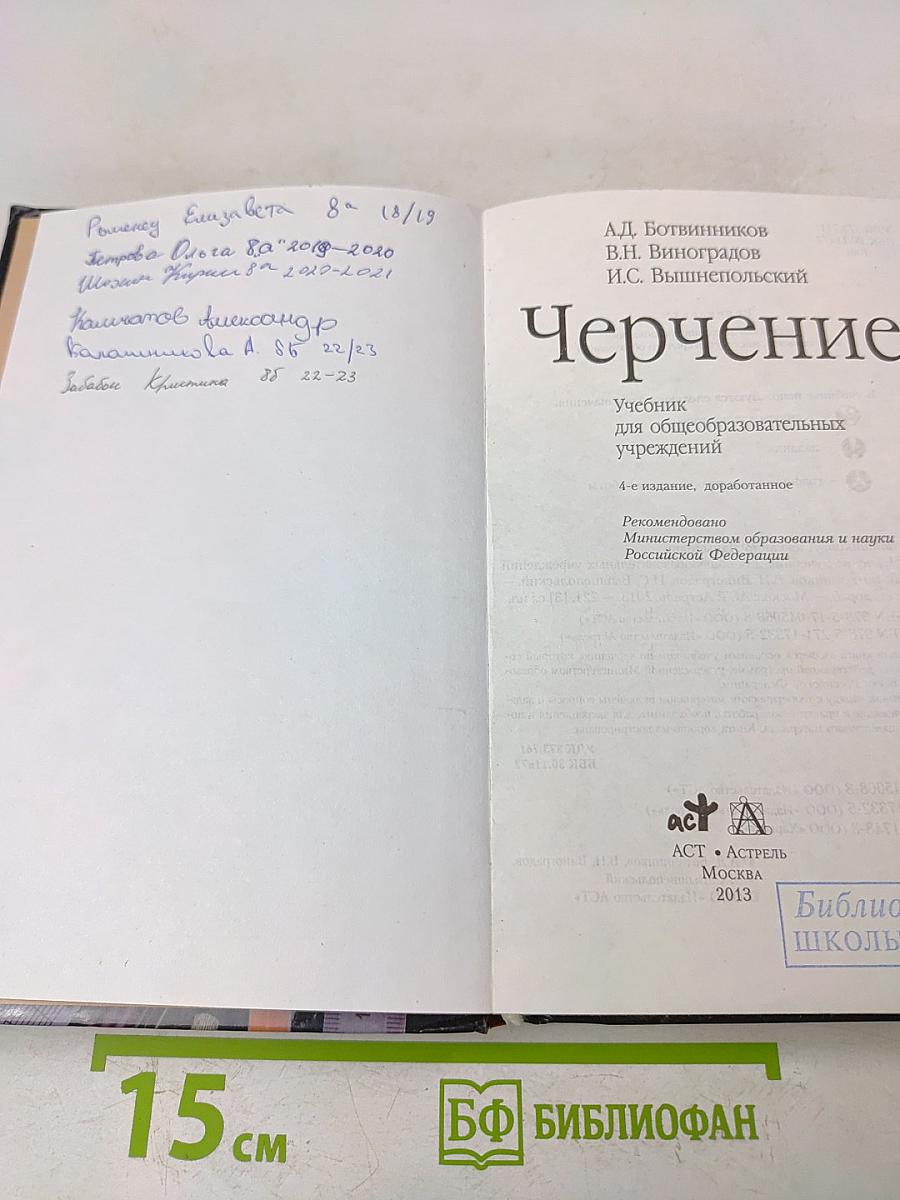 Елизавета 8а 18/19
Петрова Ольга 8„а" 2019–2020
Кирилл 8а 2020-2021
Александр
Калашникова А. 8Б 22/23
Кристина 8б 22-23
А.Д. Ботвинников
В.Н. Виноградов
И.С. Вышнепольский
Черчение
Учебник
для общеобразовательных
учреждений
4-е издание, доработанное
Рекомендовано
Министерством образования и науки
Российской Федерации
аст
АСТ • Астрель
Москва
2013
Библио
ШКОЛЫ
15 см
БФ БИБЛИОФАН